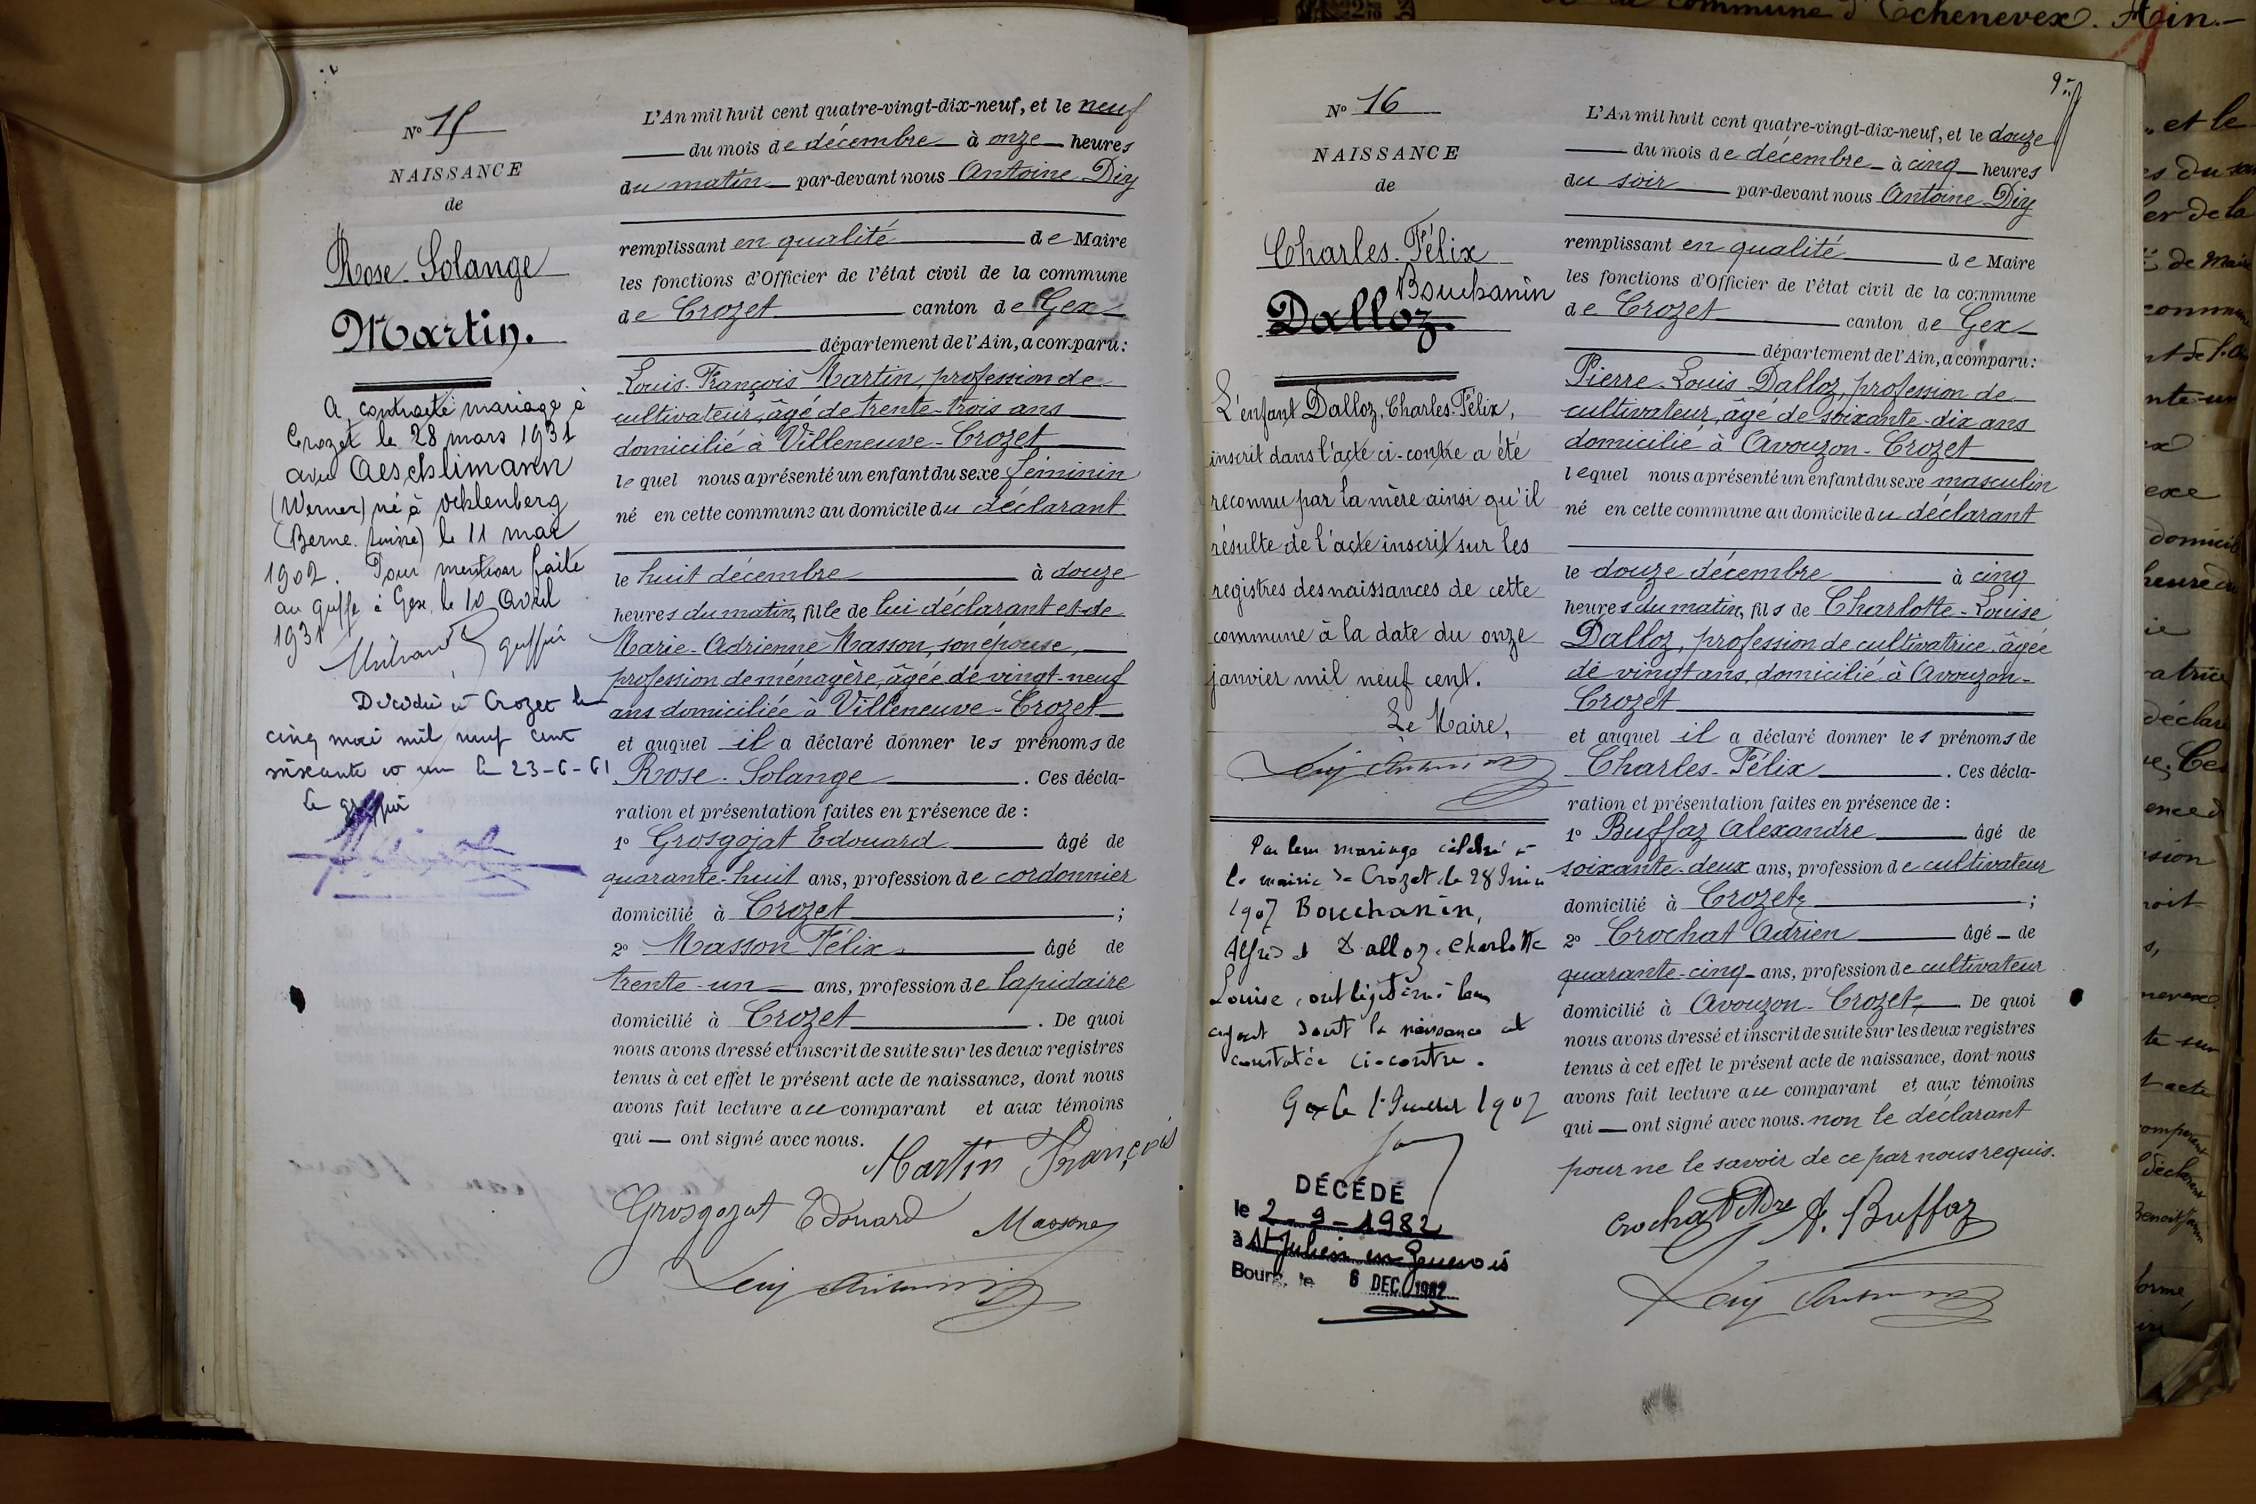 de commune d'Echenevex. Ain.
N° 15
NAISSANCE
de
Rose-Solange
Martin.
A contracté mariage à
Crozet le 28 mars 1931
avec Aeschlimann
(Werner) né à
(Berne. Suisse) le 11 mai
1902. Pour mention faite
au greffe à Gex, le 10 avril
1931
greffier
Décédée à Crozet le
cinq mai mil neuf cent
soixante et un le 23-6-61
Le greffier
L'An mil huit cent quatre-vingt-dix-neuf, et le neuf
du mois de décembre à onze heures
du matin par-devant nous Antoine Diy
remplissant en qualité de Maire
les fonctions d'Officier de l'état civil de la commune
de Crozet canton de Gex
département de l'Ain, a comparu:
Louis-François Martin, profession de
cultivateur, âgé de trente-trois ans
domicilié à Villeneuve-Crozet
lequel nous a présenté un enfant du sexe féminin
né en cette commune au domicile du déclarant
le huit décembre à douze
heures du matin, fille de lui déclarant et de
Marie-Adrienne Masson, son épouse,
profession de ménagère, âgée de vingt-neuf
ans domiciliée à Villeneuve-Crozet
et auquel il a déclaré donner les prénoms de
Rose-Solange. Ces décla-
ration et présentation faites en présence de :
1° Grosgojat Edouard âgé de
quarante-huit ans, profession de cordonnier
domicilié à Crozet ;
2° Masson Félix âgé de
trente-un ans, profession de lapidaire
domicilié à Crozet. De quoi
nous avons dressé et inscrit de suite sur les deux registres
tenus à cet effet le présent acte de naissance, dont nous
avons fait lecture au comparant et aux témoins
qui — ont signé avec nous.
Martin François
Grosgojat Edouard Masson
N° 16
NAISSANCE
de
Charles-Félix
Bouchanin
Dalloz.
L'enfant Dalloz, Charles-Félix,
inscrit dans l'acte ci-contre a été
reconnu par la mère ainsi qu'il
résulte de l'acte inscrit sur les
registres des naissances de cette
commune à la date du onze
janvier mil neuf cent.
Le Maire,
Par leur mariage célébré à
la mairie de Crozet le 28 Juin
1907 Bouchanin,
Alfred et Dalloz, Charlotte
Louise, ont légitimé leur
enfant dont la naissance est
constatée ci-contre.
Gex le 1er Juillet 1907
DÉCÉDÉ
le 2-9-1982
à St Julien en Genevois
Bourg, le 6 DEC 1982
9
L'An mil huit cent quatre-vingt-dix-neuf, et le douze
du mois de décembre à cinq heures
du soir par-devant nous Antoine Diy
remplissant en qualité de Maire
les fonctions d'Officier de l'état civil de la commune
de Crozet canton de Gex
département de l'Ain, a comparu:
Pierre-Louis Dalloz, profession de
cultivateur, âgé de soixante-dix ans
domicilié à Avouzon-Crozet
lequel nous a présenté un enfant du sexe masculin
né en cette commune au domicile du déclarant
le douze décembre à cinq
heures du matin, fils de Charlotte-Louise
Dalloz, profession de cultivatrice, âgée
de vingt ans, domicilié à Avouzon-
Crozet
et auquel il a déclaré donner les prénoms de
Charles-Félix. Ces décla-
ration et présentation faites en présence de :
1° Buffaz Alexandre âgé de
soixante-deux ans, profession de cultivateur
domicilié à Crozet ;
2° Crochat Adrien âgé de
quarante-cinq ans, profession de cultivateur
domicilié à Avouzon-Crozet, De quoi
nous avons dressé et inscrit de suite sur les deux registres
tenus à cet effet le présent acte de naissance, dont nous
avons fait lecture au comparant et aux témoins
qui — ont signé avec nous. non le déclarant
pour ne le savoir de ce par nous requis.
Crochat Adre A. Buffaz